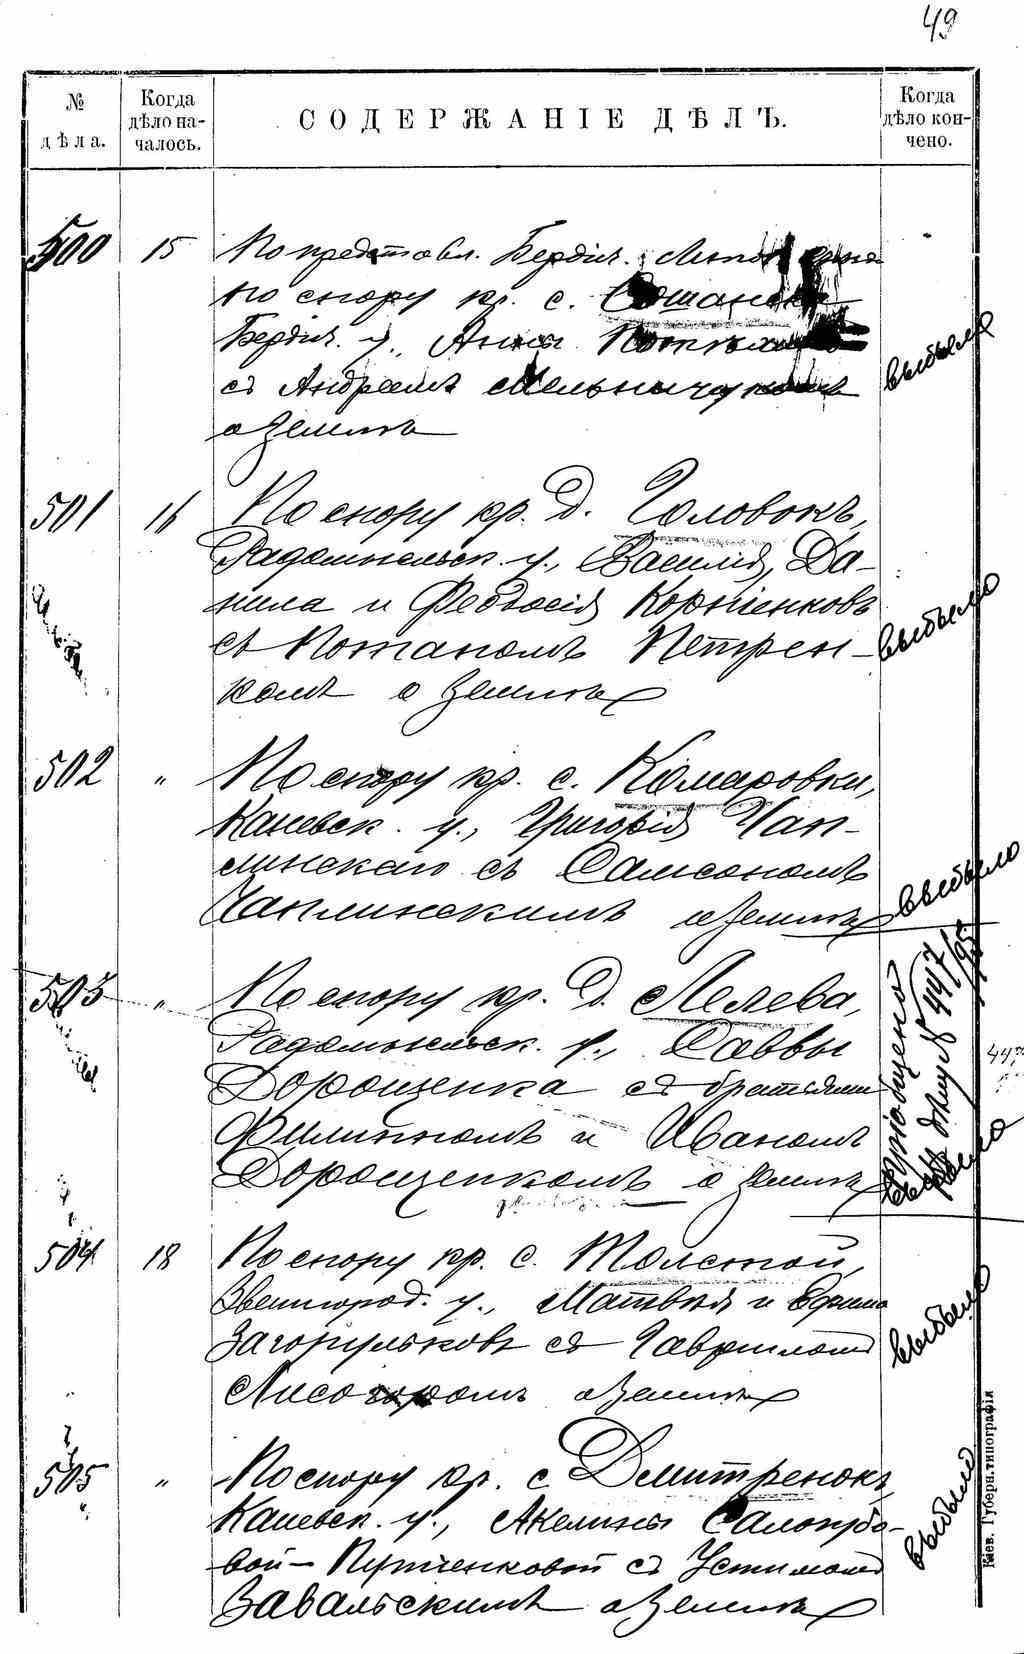 49
№ дѣла.
Когда дѣло началось.
СОДЕРЖАНІЕ ДѢЛЪ.
Когда дѣло кончено.
500
15
По представл. Бердич.
по спору кр. с. Сошанска
Бердич. у., Анны
съ Андреемъ Мельничукомъ
о землѣ
выбыло
501
16
По спору кр. д. Головокъ,
Радомысльск. у., Василія, Да-
нила и Феодосія Корніенковъ
съ Потапомъ Петрен-
комъ о землѣ
выбыло
502
"
По спору кр. с. Комаровки,
Каневск. у., Григорія Чап-
линскаго съ Самсономъ
Чаплинскимъ о землѣ
выбыло
503
"
По спору кр. д. Лелева,
Радомысльск. у., Саввы
Дорошенка съ братьями
Филиппомъ и Иваномъ
Дорошенкомъ о землѣ
Пріобщено
къ дѣлу № 447/95
выбыло
504
18
По спору кр. с. Толстой,
Звенигород. у., Матвѣя и Ефима
Загорульковъ съ Гавриломъ
Лисогоромъ о землѣ
выбыло
505
"
По спору кр. с. Дмитренокъ,
Каневск. у., Акелины
вой- съ Устимомъ
Завальскимъ о землѣ
выбыло
Кіев. Губерн. типографія